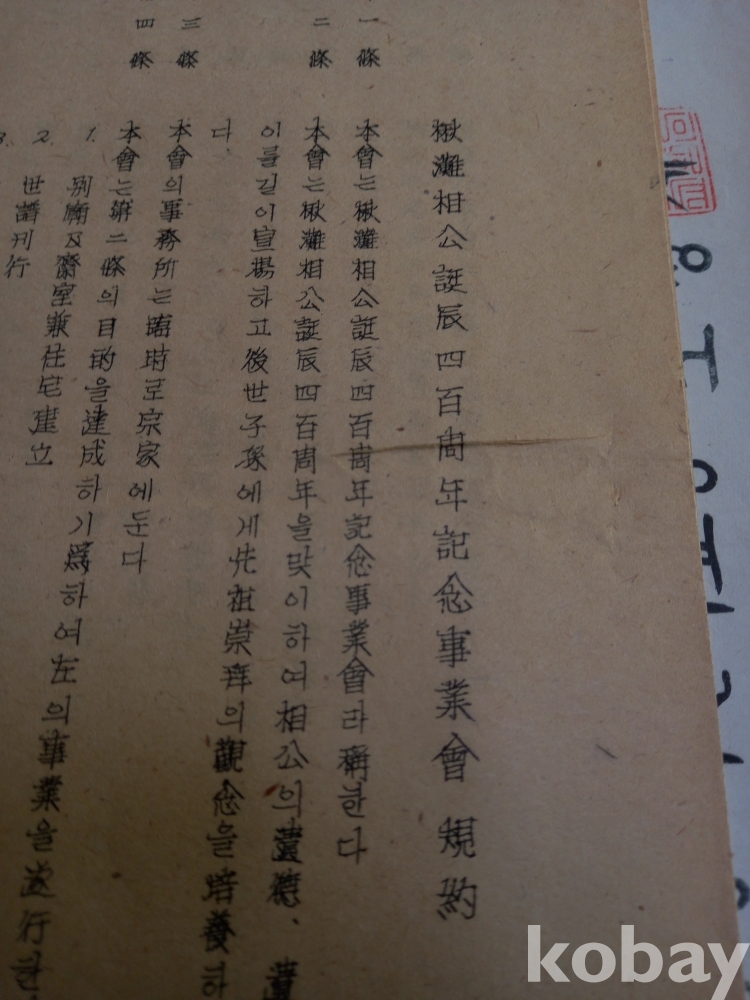 楸灘相公誕辰四百周年記念事業會 規約
一條 本會는 楸灘相公誕辰四百周年記念事業會라 稱한다
二條 本會는 楸灘相公誕辰四百周年을 맞이하여 相公의 遺德、遺
이를 길이 宣揚하고 後世子孫에게 先祖崇拜의 觀念을 培養하
다.
三條 本會의 事務所는 臨時로 宗家에 둔다
四條 本會는 第二條의 目的을 達成하기 爲하여 左의 事業을 遂行한
1. 別廟及齋室兼住宅建立
2. 世譜刊行
3.
kobay